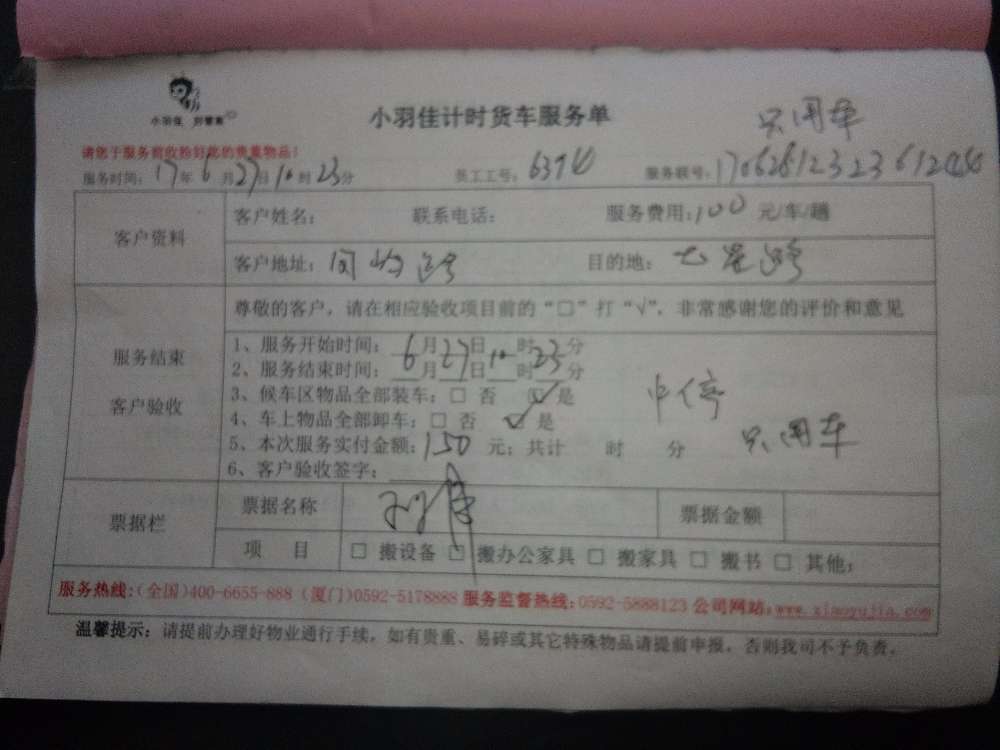 小羽佳
小羽佳计时货车服务单
只用车
请您于服务前收好您的贵重物品！
服务时间：17年6月27日10时23分 员工工号：6394 服务联号：
客户资料
客户姓名： 联系电话： 服务费用：100元/车/趟
客户地址： 目的地：七星路
尊敬的客户，请在相应验收项目前的“□”打“√”，非常感谢您的评价和意见
服务结束
客户验收
1、服务开始时间：6月27日10时23分
2、服务结束时间：__月__日__时__分
3、候车区物品全部装车：□ 否 ☑ 是
4、车上物品全部卸车：□ 否 ☑ 是
中停
5、本次服务实付金额：150元；共计 时 分 只用车
6、客户验收签字：
票据栏
票据名称 票据金额
项 目 □ 搬设备 □ 搬办公家具 □ 搬家具 □ 搬书 □ 其他：
服务热线：(全国)400-6655-888（厦门）0592-5178888 服务监督热线：0592-5888123 公司网站：www.xiaoyujia.com
温馨提示：请提前办理好物业通行手续，如有贵重、易碎或其它特殊物品请提前申报，否则我司不予负责。